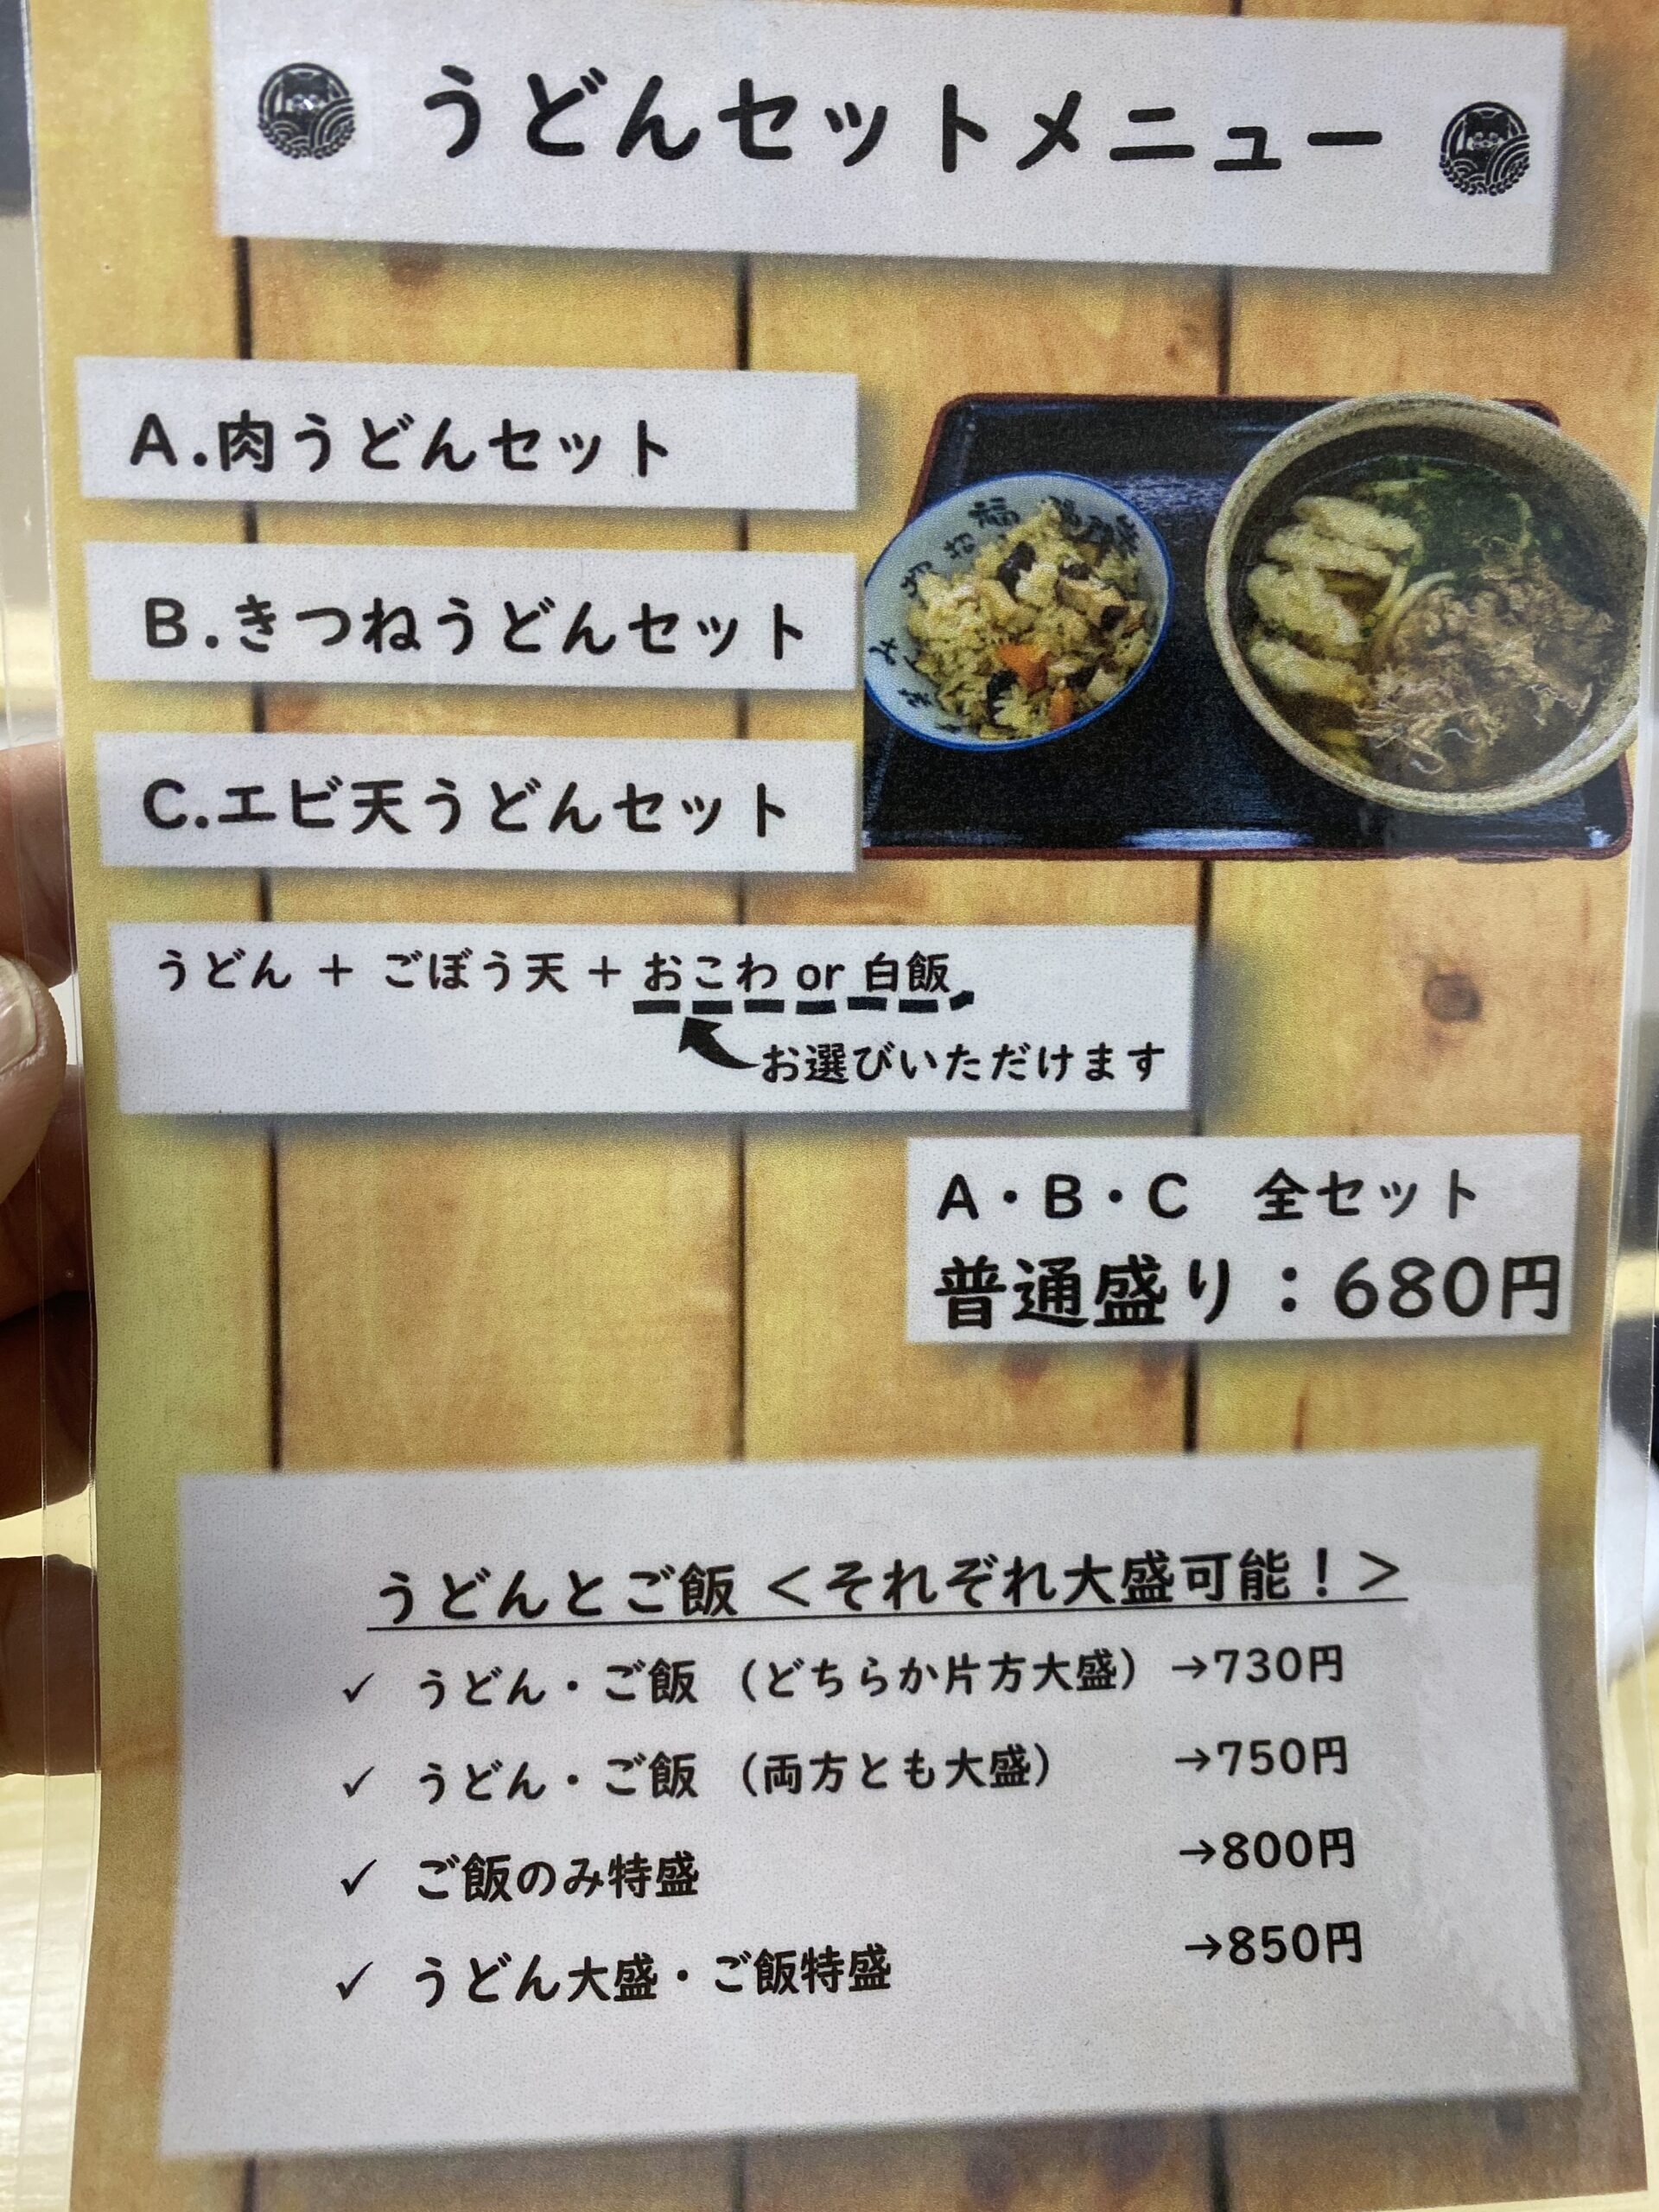 うどんセットメニュー
A.肉うどんセット
B.きつねうどんセット
C.エビ天うどんセット
うどん + ごぼう天 + おこわ or 白飯
お選びいただけます
A・B・C 全セット
普通盛り：680円
うどんとご飯 <それぞれ大盛可能！>
✓ うどん・ご飯 （どちらか片方大盛）→730円
✓ うどん・ご飯 （両方とも大盛） →750円
✓ ご飯のみ特盛 →800円
✓ うどん大盛・ご飯特盛 →850円